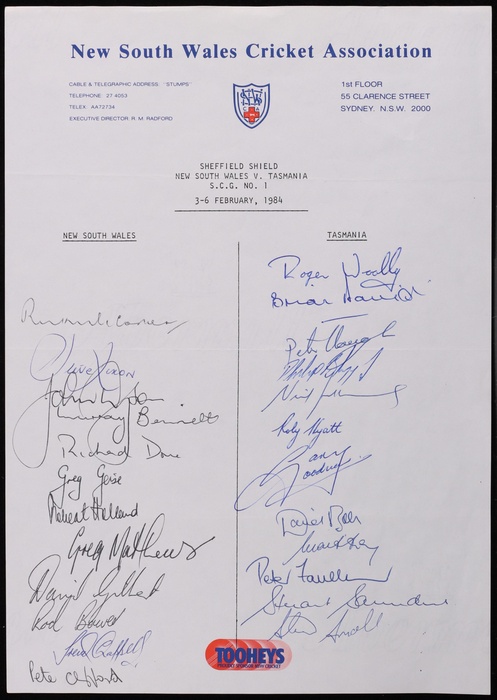 New South Wales Cricket Association
CABLE & TELEGRAPHIC ADDRESS: "STUMPS"
TELEPHONE 27 4053
TELEX AA72734
EXECUTIVE DIRECTOR: R. M. RADFORD
1st FLOOR
55 CLARENCE STREET
SYDNEY. N.S.W. 2000
SHEFFIELD SHIELD
NEW SOUTH WALES V. TASMANIA
S.C.G. NO. 1
3-6 FEBRUARY, 1984
NEW SOUTH WALES
Steve
John Dyson
Murray Bennett
Richard Done
Greg Geise
Robert Holland
Greg Matthews
David Gilbert
Rod Bower
Trevor Chappell
Pete Clifford
TASMANIA
Roger Woolley
Brian Davison
Peter Clough
Roly Hyatt
Gary Goodman
David Boon
Mark Ray
Peter Faulkner
Stuart Saunders
Steve Small
TOOHEYS